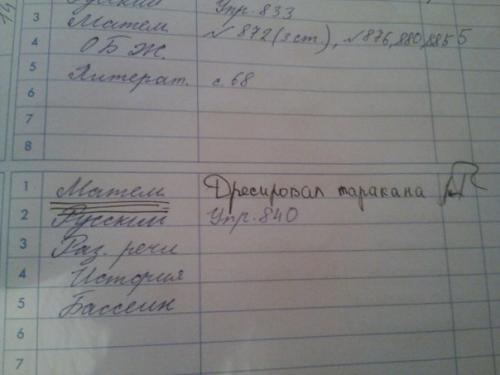 14
Русский Упр. 833
3 Матем № 872 (3 ст.), № 876, 880, 885 5
4 ОБЖ.
5 Литерат. с. 68
6
7
8
1 Матем Дресировал таракана
2 Русский Упр. 840
3 Раз. речи
4 История
5 Бассейн
6
7